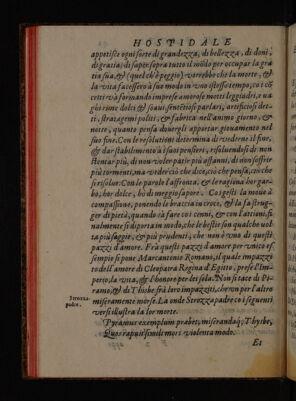 HOSPIDALE
appetisce ogni sorte di grandezza, di bellezza, di doni,
di gratia; di saper sopra tutto il modo per occupar la gra
tia sua, & (quel ch'è peggio) varebbe che la morte, &
la vita facessero à suo modo in vno istesso tempo, et cō
certi và formando imprese amorose, motti leggiadri, e va
ghe rime dolci & soaui, sentētiosi parlari, artificiosi det-
ti, stratagemi politi, & fabrica nell'animo giorno, &
notte, quanto pensa douergli apportar giouamento nel
suo fine. Con le resolutioni determina di vederne il fine,
& dar stabilimento à suoi pensieri, risoluendosi di non
stentar più, di non voler patir più affanni, di non soffrir
più tormenti, ma veder ciò che dice, ciò che pensa, ciò che
si resolue: Con le parole l'affronta, & le ragiona hor gar-
bo, hor dolce, hò di meggio sapore. Co i gesti la moue à
compassione, ponendo le braccia in croce, & la fa strug-
ger di pietà, quando tà fare co i cenni, & con l'attioni. fi-
nalmente si diporta in modo, che le bestie son qualche vol
ta più sagge, & più prudenti, che non è vna di questi
pazzi d'amore. Frà questi pazzi d'amor per vnico es-
sempio si pone Marcantonio Romano, il quale impazzì
to dell'amore di Cleopatra Regina d'Egitto, perse l'im-
perio, la vita, & l'honore per dei sola. Non si tace di Pi-
ramo, & di Thisbe frà loro impazziti, che vn per l'altro
Strozza
padre.
miseramente morse. La onde Strozza padre co i seguenti
versi illustra la lor morte.
Pyramus exemplum prabet, miserandaq; Thysbe,
Quos rapuit simili mors violenta modo.
Et